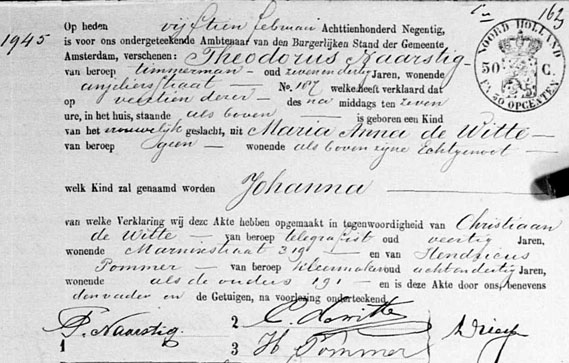 163
1945
Op heden vijftien Februari Achttienhonderd Negentig,
is voor ons ondergeteekend Ambtenaar van den Burgerlijken Stand der Gemeente
Amsterdam, verschenen: Theodorus Naarstig
van beroep timmerman oud zevenendertig Jaren, wonende
anjeliersstraat No. 167 welke heeft verklaard dat
op veertien dezer des na middags ten zeven
ure, in het huis, staande als boven is geboren een Kind
van het vrouwelijk geslacht, uit Maria Anna de Witte
van beroep geen wonende als boven zijne Echtgenoot
welk Kind zal genaamd worden Johanna
van welke Verklaring wij deze Akte hebben opgemaakt in tegenwoordigheid van Christiaan
de Witte van beroep telegrafist oud veertig Jaren,
wonende Marnixstraat en van Hendricus
Pommer van beroep kleermaker oud achtendertig Jaren,
wonende als de ouders en is deze Akte door ons, benevens
den vader en de Getuigen, na voorlezing onderteekend.
T. Naarstig. 2 C. de Witte
1 3 H Pommer
NOORD HOLLAND
50 C.
EN 20 OPCENTEN